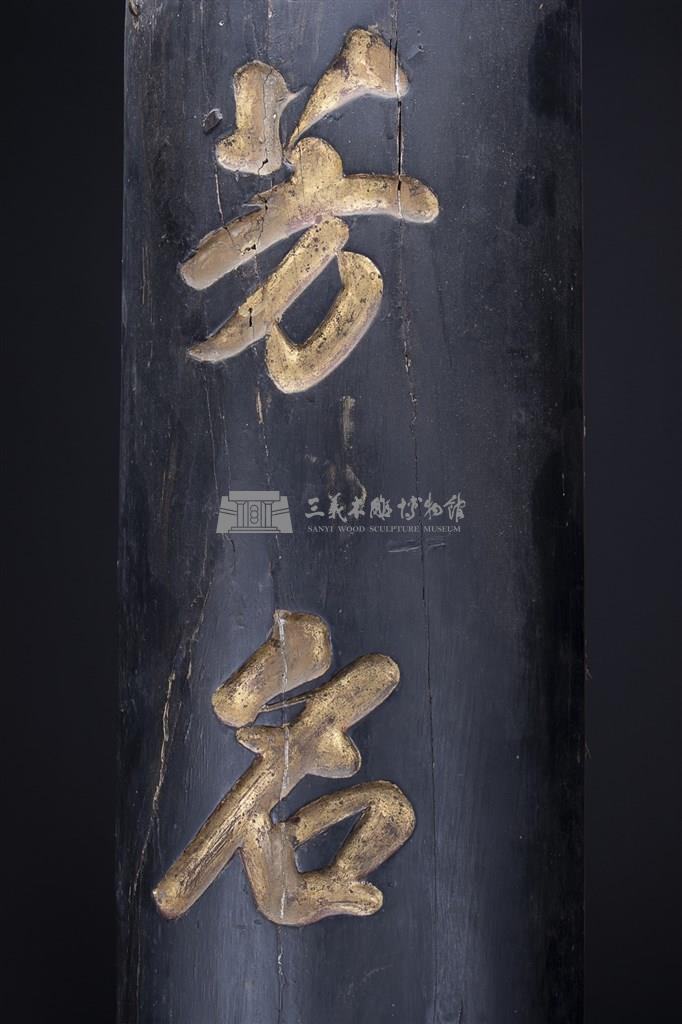 芳
名
三義木雕博物館
SANYI WOOD SCULPTURE MUSEUM